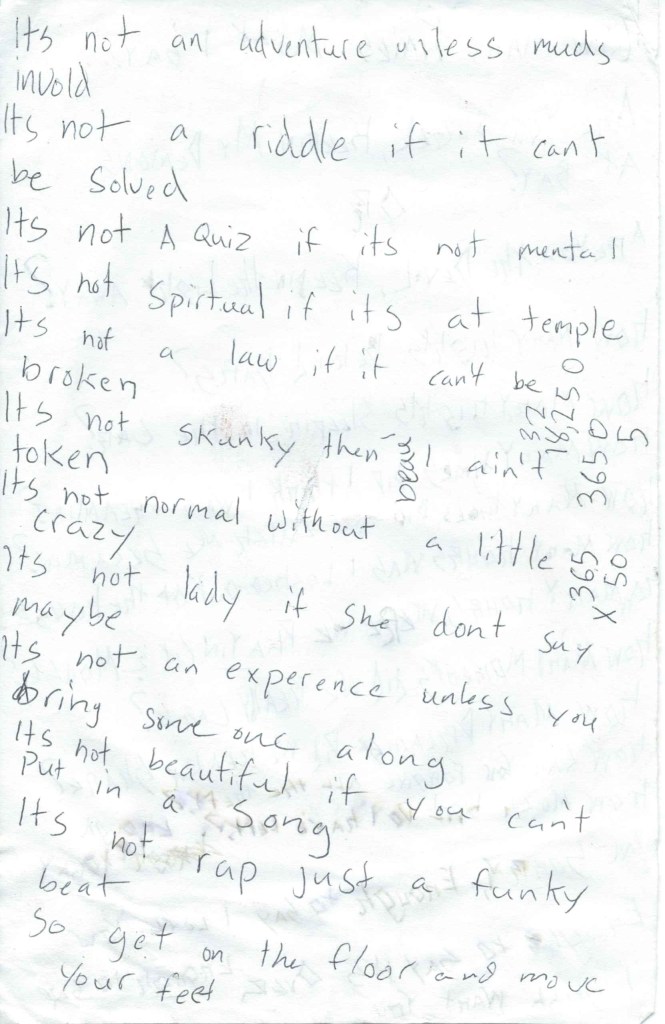 Its not an adventure unless muds
invold
Its not a riddle if it cant
be solved
Its not A Quiz if its not mental
Its not spirtual if its at temple
Its not a law if it can't be
broken
Its not skunky then I ain't
token
beau
Its not normal without a little
crazy
Its not lady if she dont say
maybe
Its not an experence unless you
bring some one along
Its not beautiful if you can't
Put in a song
Its not rap just a funky
beat
So get on the floor and move
your feet
32
18,250
365 0
5
365
x 50